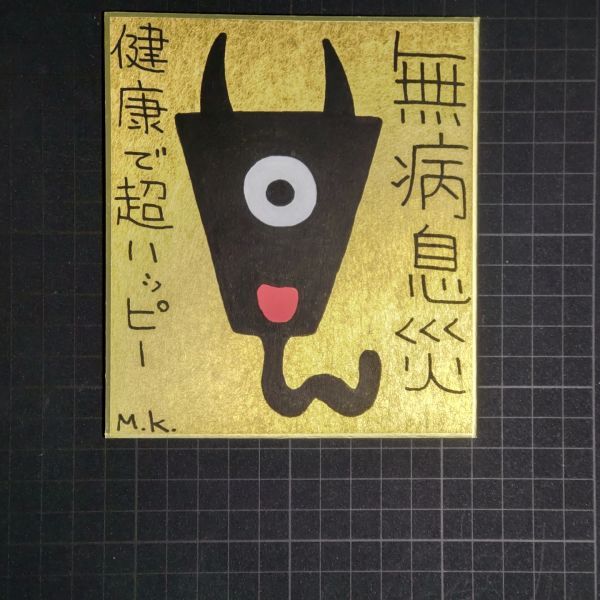 無病息災
健康で超ハッピー
M.K.